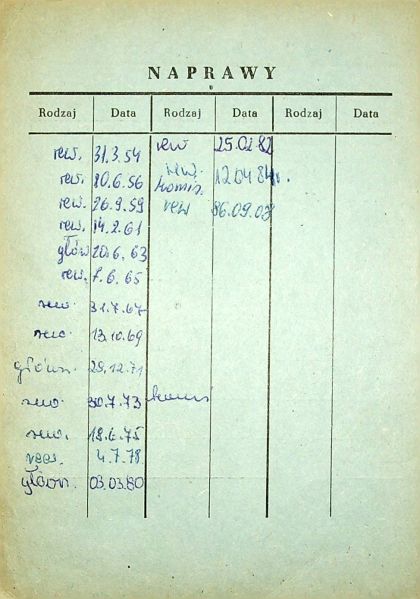 NAPRAWY
Rodzaj Data Rodzaj Data Rodzaj Data
rew. 31.3.54 rew 25.02.82
rew. 10.6.56 rew. komis. 12.04.84r.
rew. 26.9.59 rew 86.09.03
rew. 14.2.61
główn 20.6.63
rew. 7.6.65
rew. 31.7.67
rew. 13.10.69
główn. 29.12.71
rew. 30.7.73
rew. 18.6.75
rew. 4.7.78
główn. 03.03.80